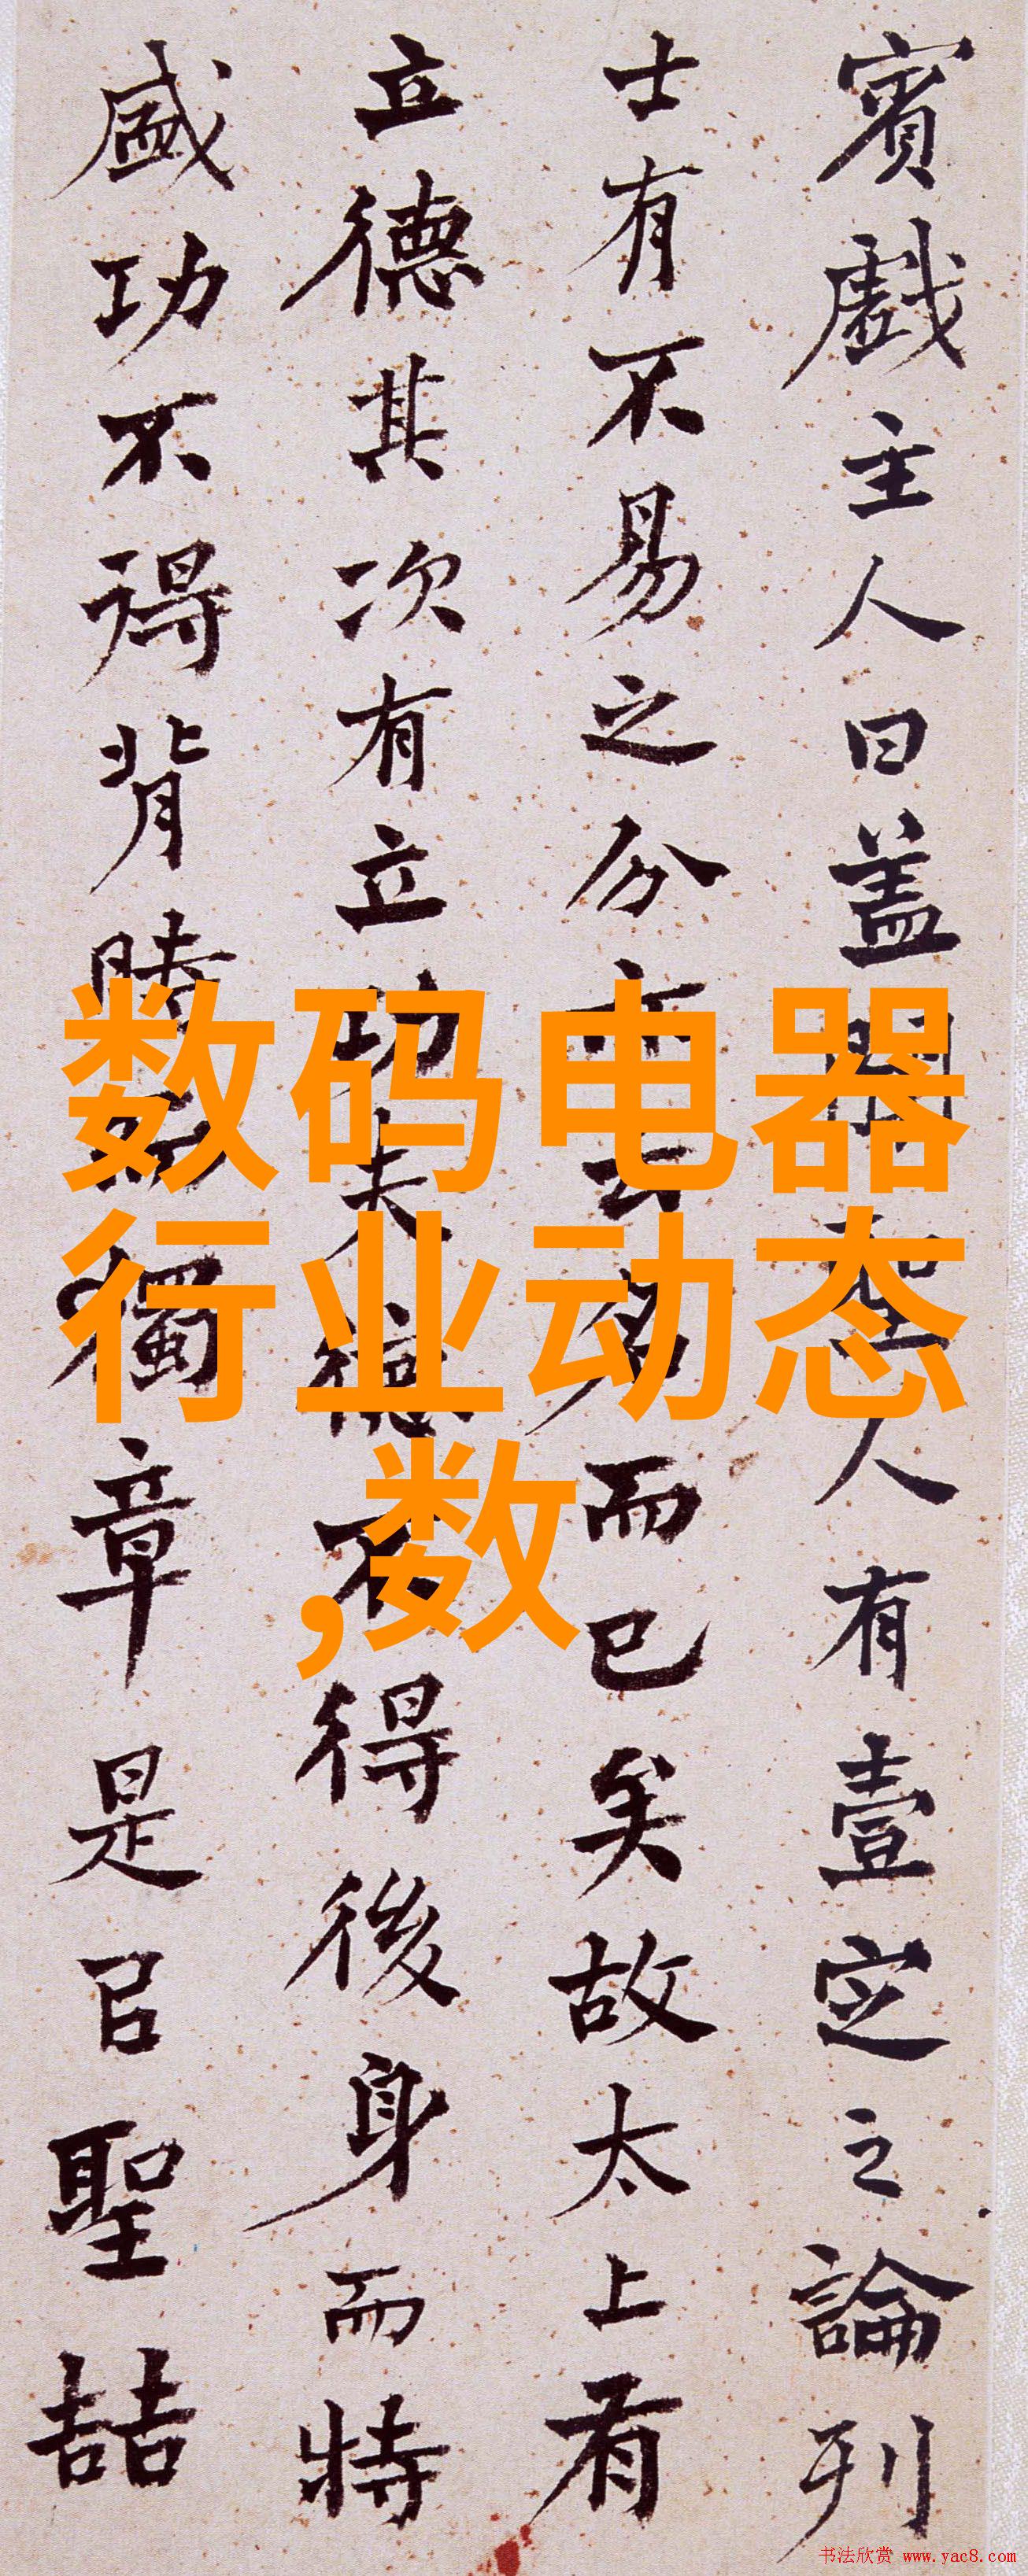 賓戲主人曰盖聞聖人有壹定之論列
士有不易之分亦云名而已矣故太上有
立德其次有立功夫德不得後身而特
盛功不得背時而獨章是㠯聖喆
数码电器
行业动态
,数
书法欣赏 www.yac8.com